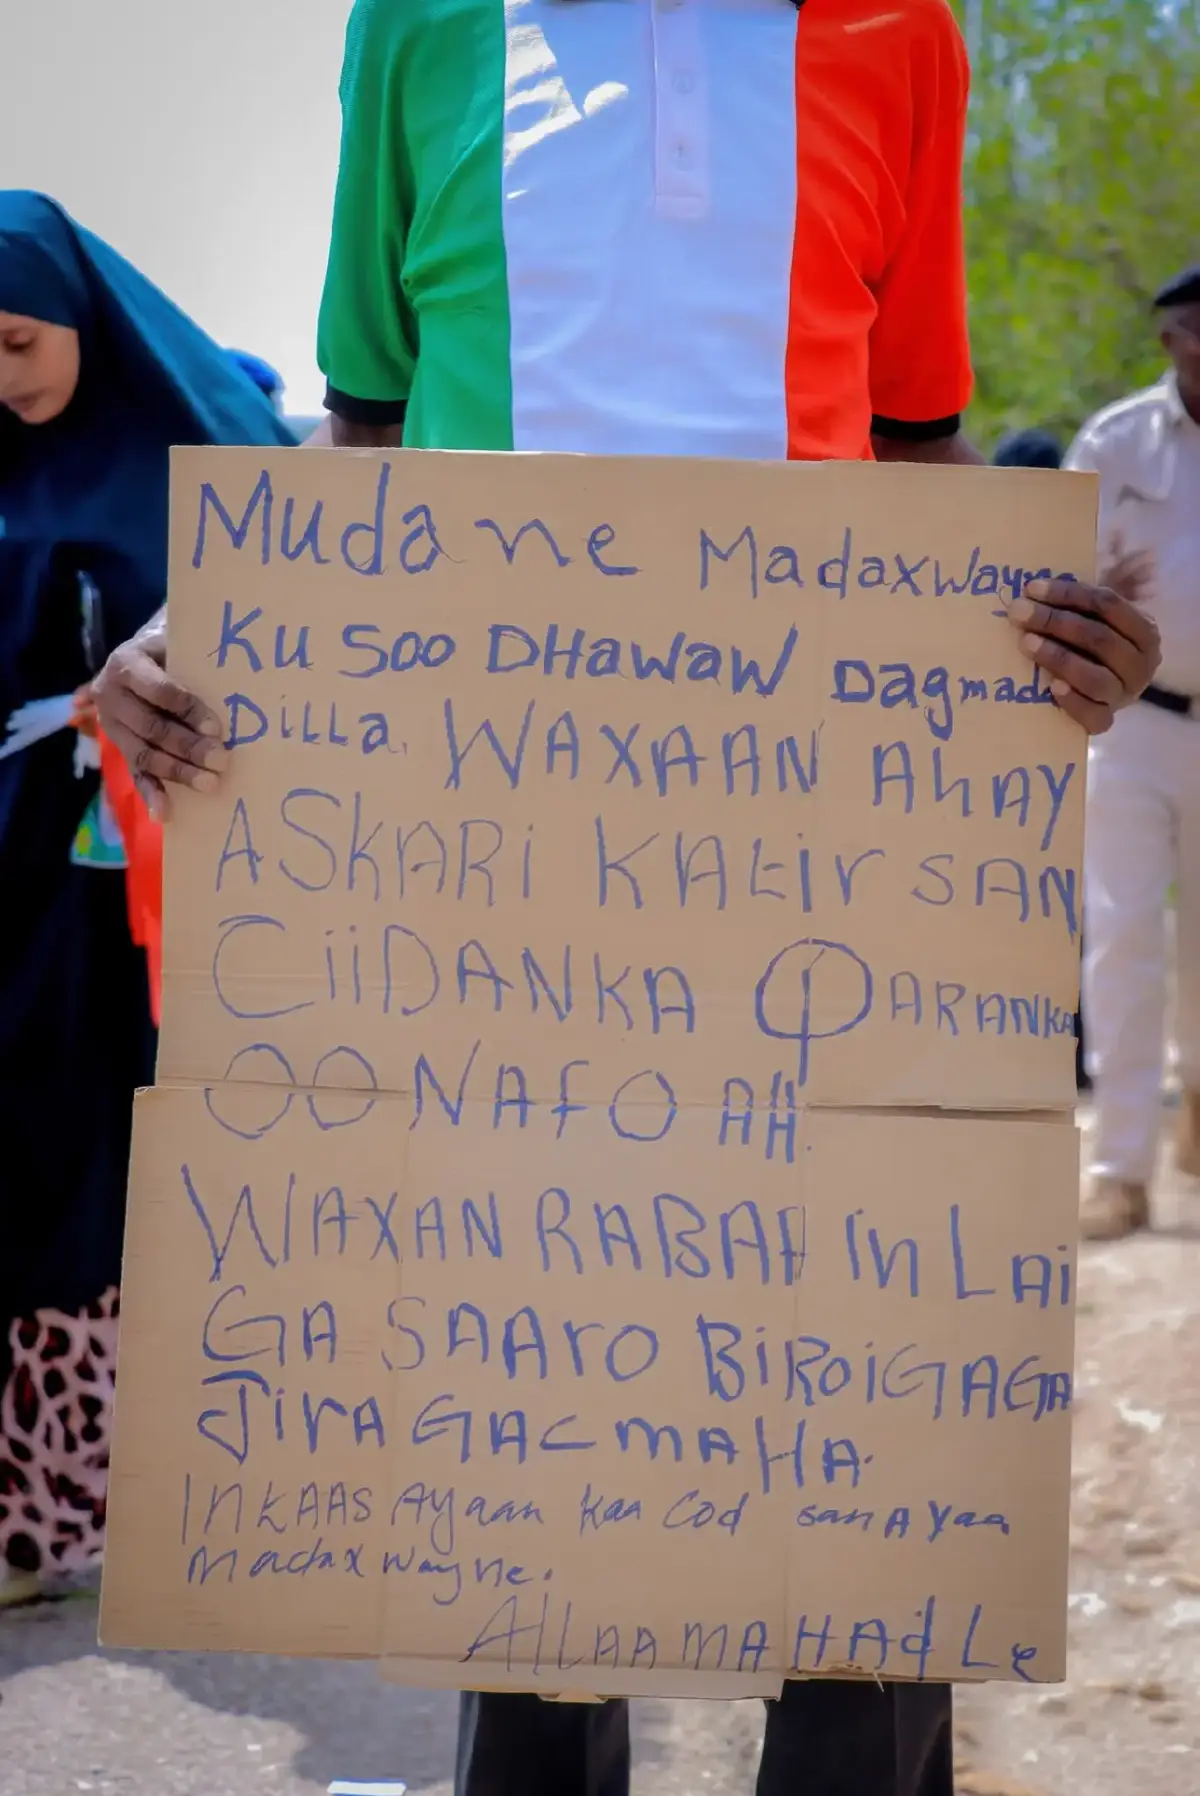 Mudane Madaxwayne
KU SOO DHAWAW Dagmada
DiLLa. WAXAAN AhAY
ASKARi KAtir SAN
CiiDANKA QARANKA
OO NAFO AH.
WAXAN RABAA IN LAi
GA SAARO BIROiGAGA
JirA GACMAHA.
INKAAS Ayaan kaa Cod sanAyaa
Madaxwayne.
AllAAMAHAdLe